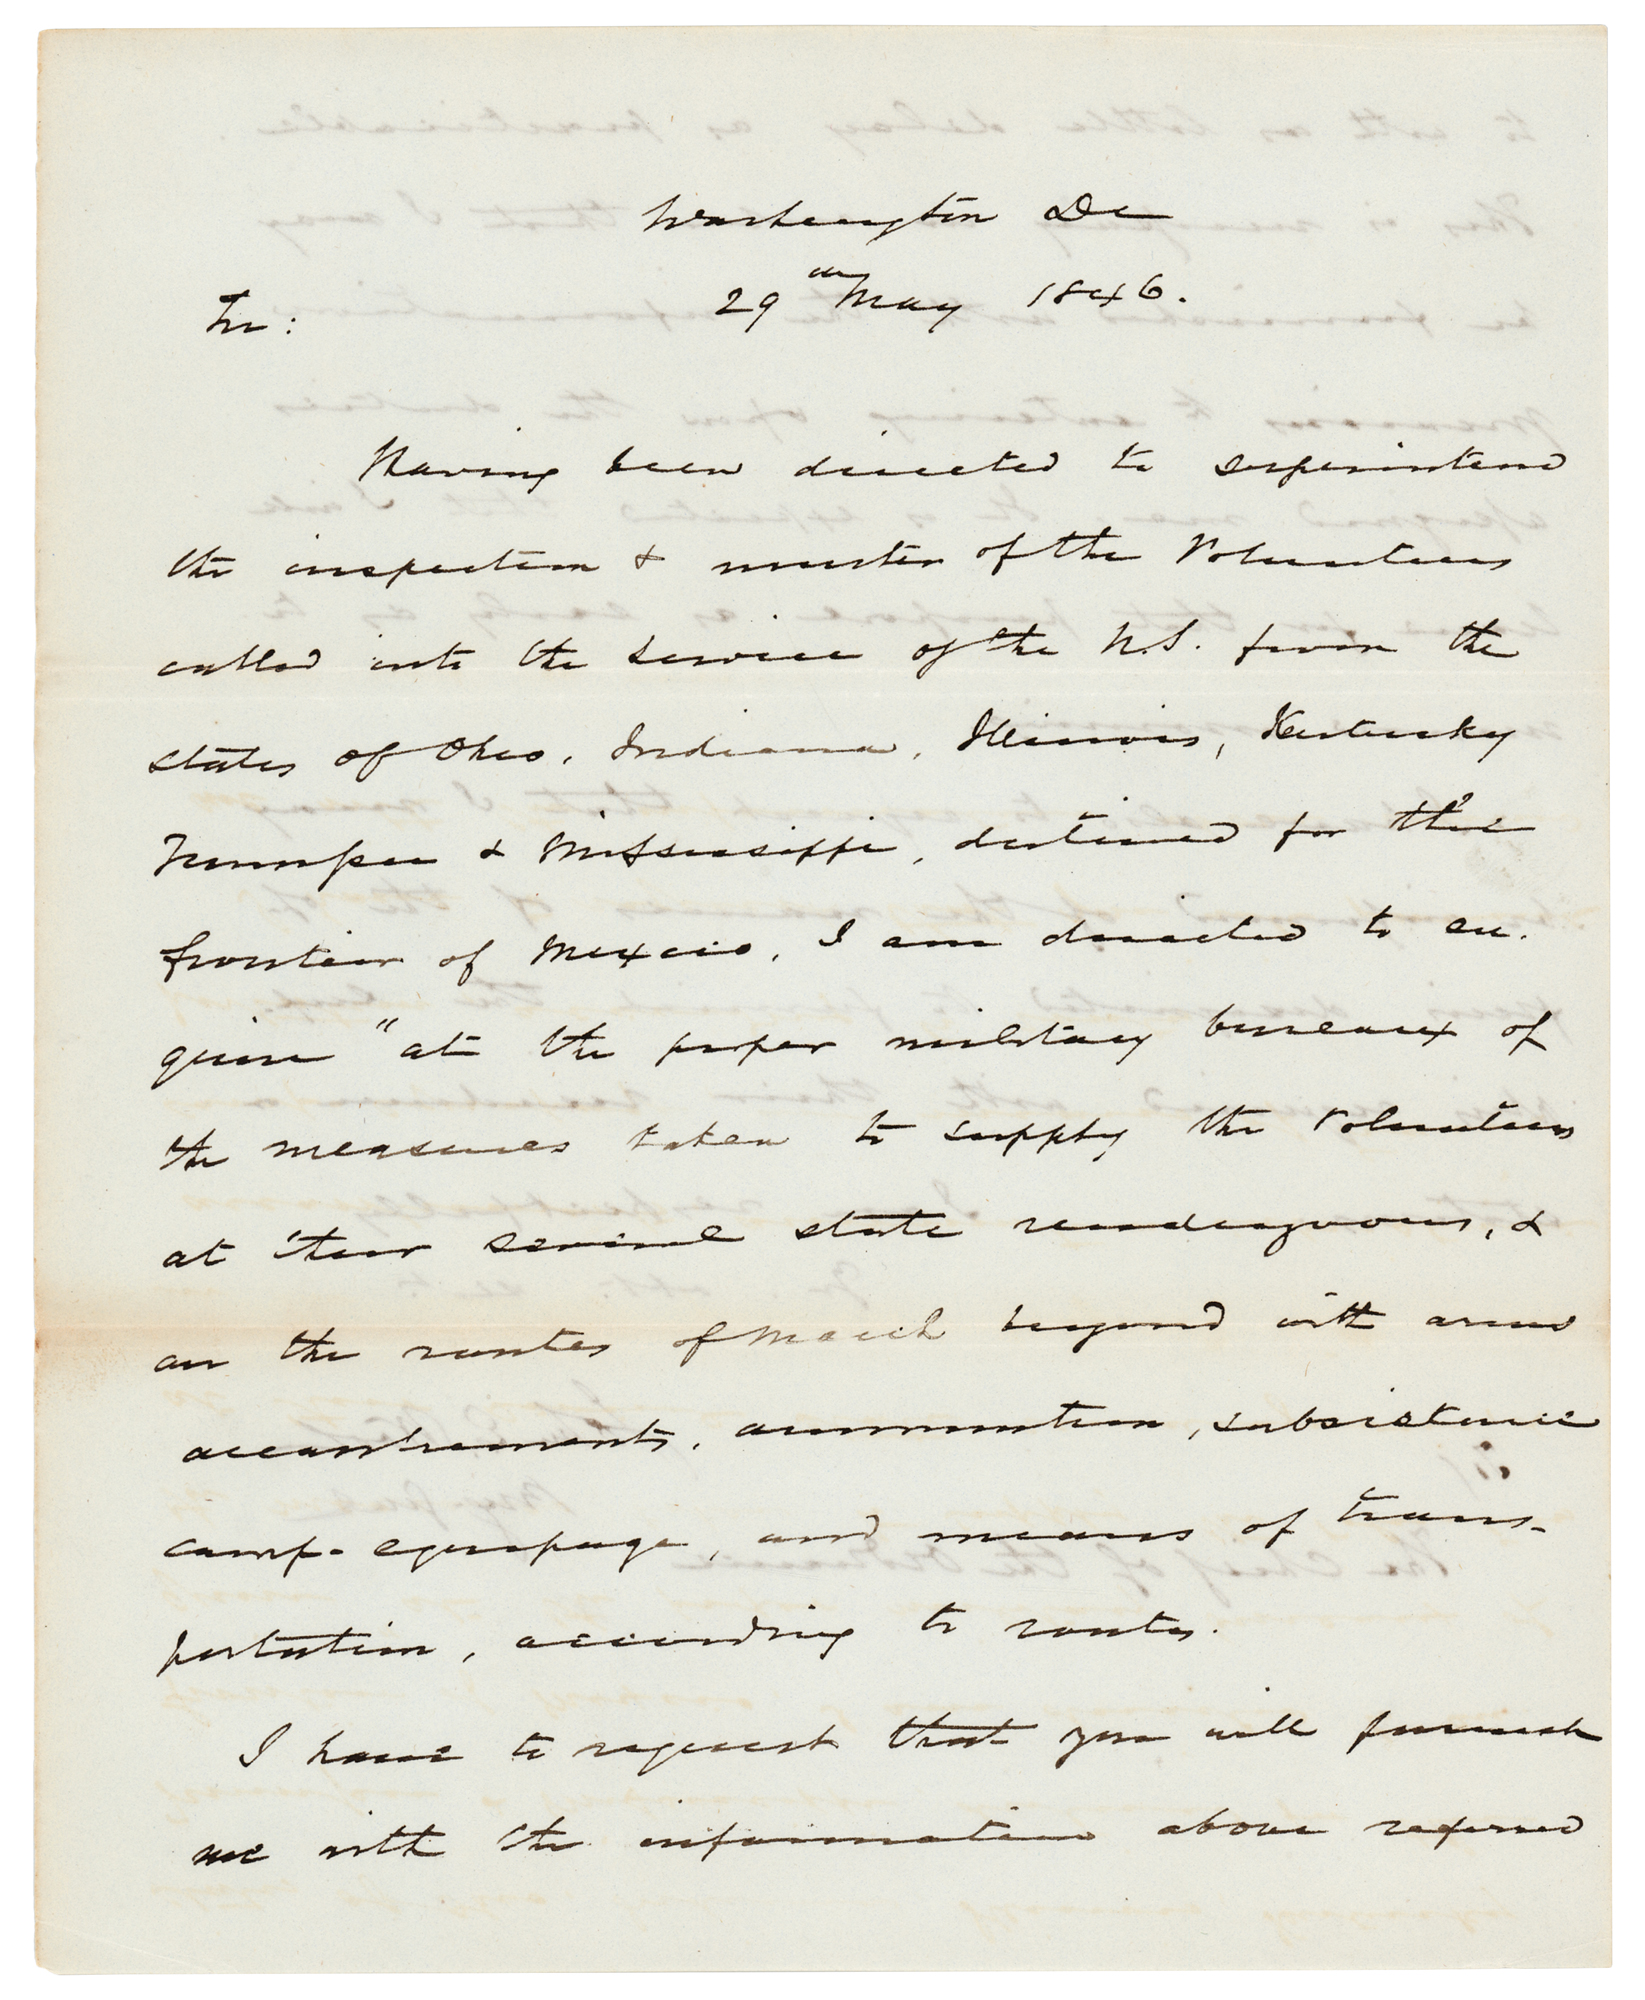 Washington Dc
29th May 1846.
Sir:
Having been directed to superintend
the inspection & muster of the Volunteers
called into the service of the U.S. from the
states of Ohio, Indiana, Illinois, Kentucky
Tennessee & Mississippi, destined for the
frontier of Mexico, I am directed to en-
quire "at the proper military bureaux of
the measures taken to supply the Volunteers
at their several state rendezvous, &
on the routes of march beyond with arms
accoutrements, ammunition, subsistence
camp-equipage, and means of trans-
portation, according to routes.
I have to request that you will furnish
me with the information above referred